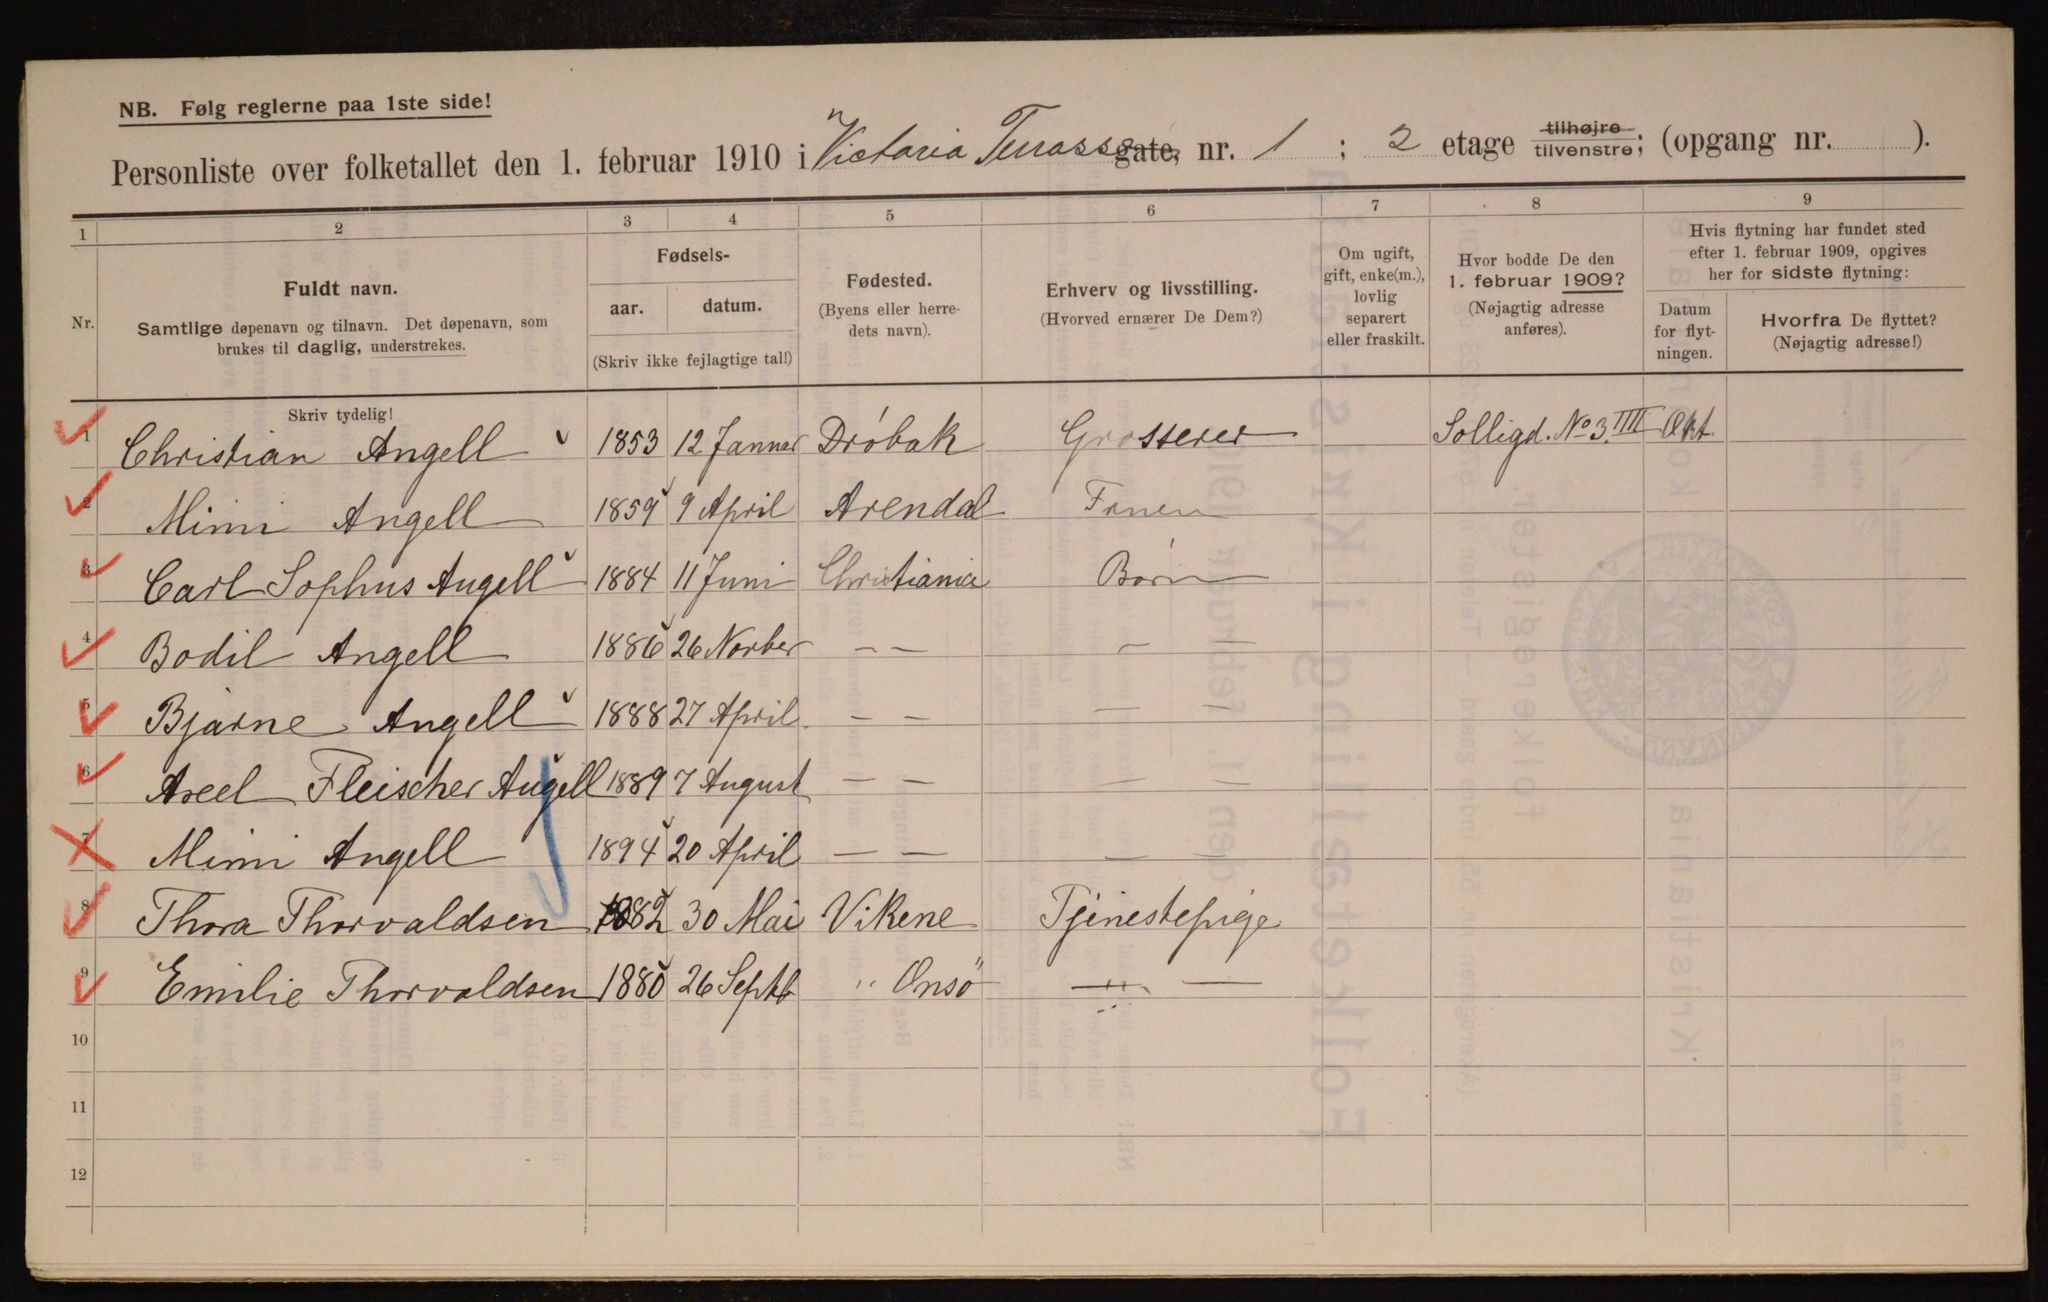 NB. Følg reglerne paa 1ste side!
Personliste over folketallet den 1. februar 1910 i Victoria Terrasse gate, nr. 1 ; 2 etage tilhøjre tilvenstre; (opgang nr. ).
1 2 3 4 5 6 7 8 9
Nr.
Fuldt navn.
Samtlige døpenavn og tilnavn. Det døpenavn, som
brukes til daglig, understrekes.
Fødsels-
aar. datum.
(Skriv ikke fejlagtige tal!)
Fødested.
(Byens eller herre-
dets navn).
Erhverv og livsstilling.
(Hvorved ernærer De Dem?)
Om ugift,
gift, enke(m.),
lovlig
separert
eller fraskilt.
Hvor bodde De den
1. februar 1909?
(Nøjagtig adresse
anføres).
Hvis flytning har fundet sted
efter 1. februar 1909, opgives
her for sidste flytning:
Datum
for flyt-
ningen.
Hvorfra De flyttet?
(Nøjagtig adresse!)
Skriv tydelig!
1 Christian Angell 1853 12 Januar Dröbak Grosserer Solligd. No 3 IIII Okt.
2 Mimi Angell 1859 9 April Arendal Fruen
3 Carl Sophus Angell 1884 11 Juni Christiania Børn
4 Bodil Angell 1886 26 Novber — — — —
5 Bjarne Angell 1888 27 April — — — —
6 Axel Fleischer Angell 1889 7 August — — — —
7 Mimi Angell 1894 20 April — — — —
8 Thora Thorvaldsen 1882 30 Mai Vikene Tjenestepige
9 Emilie Thorvaldsen 1880 26 Septb " Onsö — " —
10
11
12